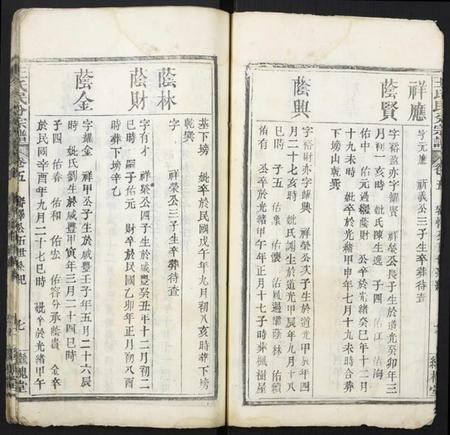 祥應
字元陞 祥義公三子生卒葬待查
蔭賢
字裕啟亦字耀賢 祥榮公長子生於道光癸卯年三
月初一亥時 妣氏陳生
佑中 佑元過繼蔭財 公卒於光緒癸巳年十二月
十九未時 妣卒於光緒甲申年七月十九未時合葬
下塝山乾巽
蔭興
字裕財亦字耀興 祥榮公次子生於道光年四
月二十七亥時 妣氏謝生於道光甲辰年九月十八
巳時 子五 佑集 佑
佑有 公卒於光緒甲午年正月十七子時葬楓樹屋
基下塝 妣卒於民國戊午年九月初八亥時葬下塝
乾巽
蔭林
字 祥榮公三子生卒葬待查
蔭財
字有才 祥榮公四子生於咸豐癸丑年十二月初二
巳時 嗣子佑元 財卒於民國乙卯年正月初八酉
時葬下塝辛乙
蔭金
字耀金 祥甲公子生於咸豐壬子年五月二十六辰
時 妣氏劉生於咸豐甲寅年三月二十四巳時
子四 佑春 佑和 佑宏 佑容兮承蔭貴 金卒
於民國辛酉年九月二十七巳時 妣卒於光緒甲午